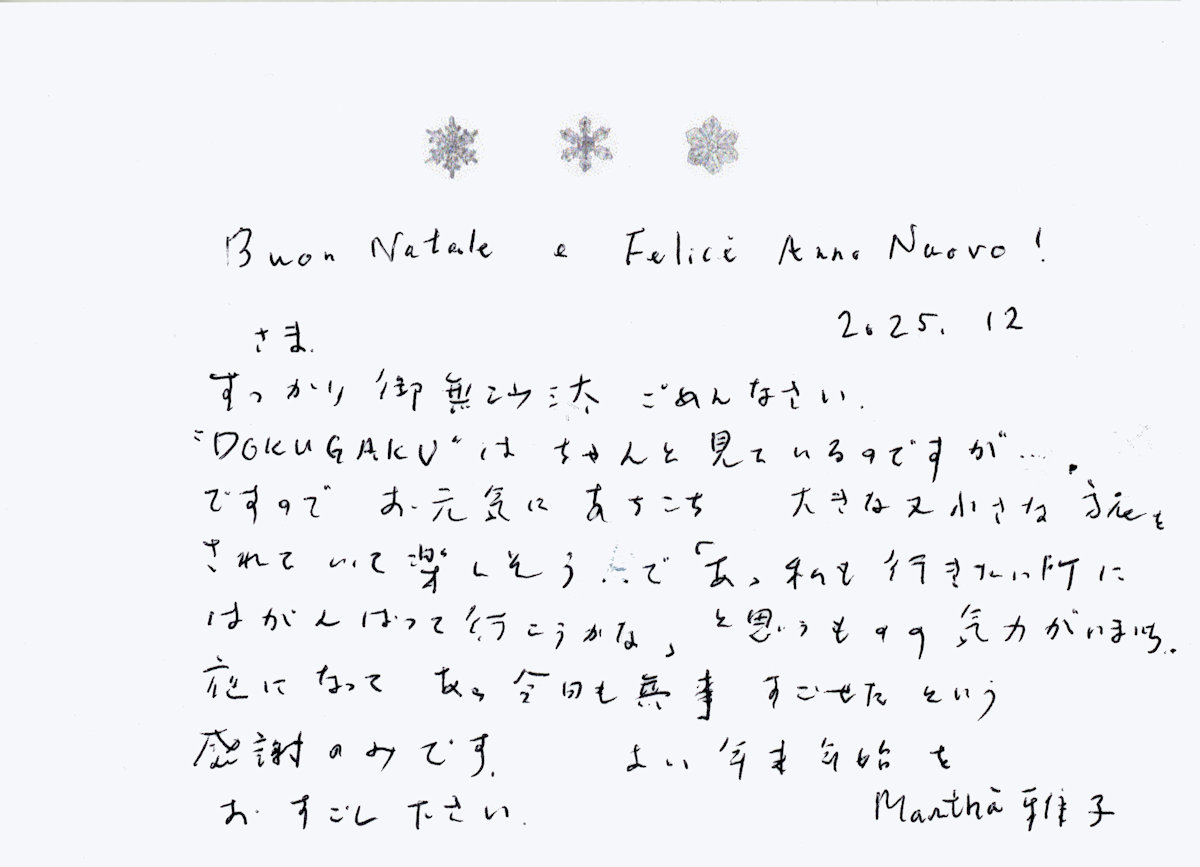 Buon Natale e Felice Anno Nuovo!
2025. 12
さま.
すっかり御無沙汰ごめんなさい.
"DOKUGAKU"はちゃんと見ているのですが….
ですのでお元気にあちこち 大きな又小さな旅を
されていて楽しそうで「あゝ私も行きたい所に
はがんばって行こうかな、と思うものの気力がいまいち.
になって あゝ今日も無事すごせたという
感謝のみです. よい年末年始を
おすごしください.
Martha 雅子